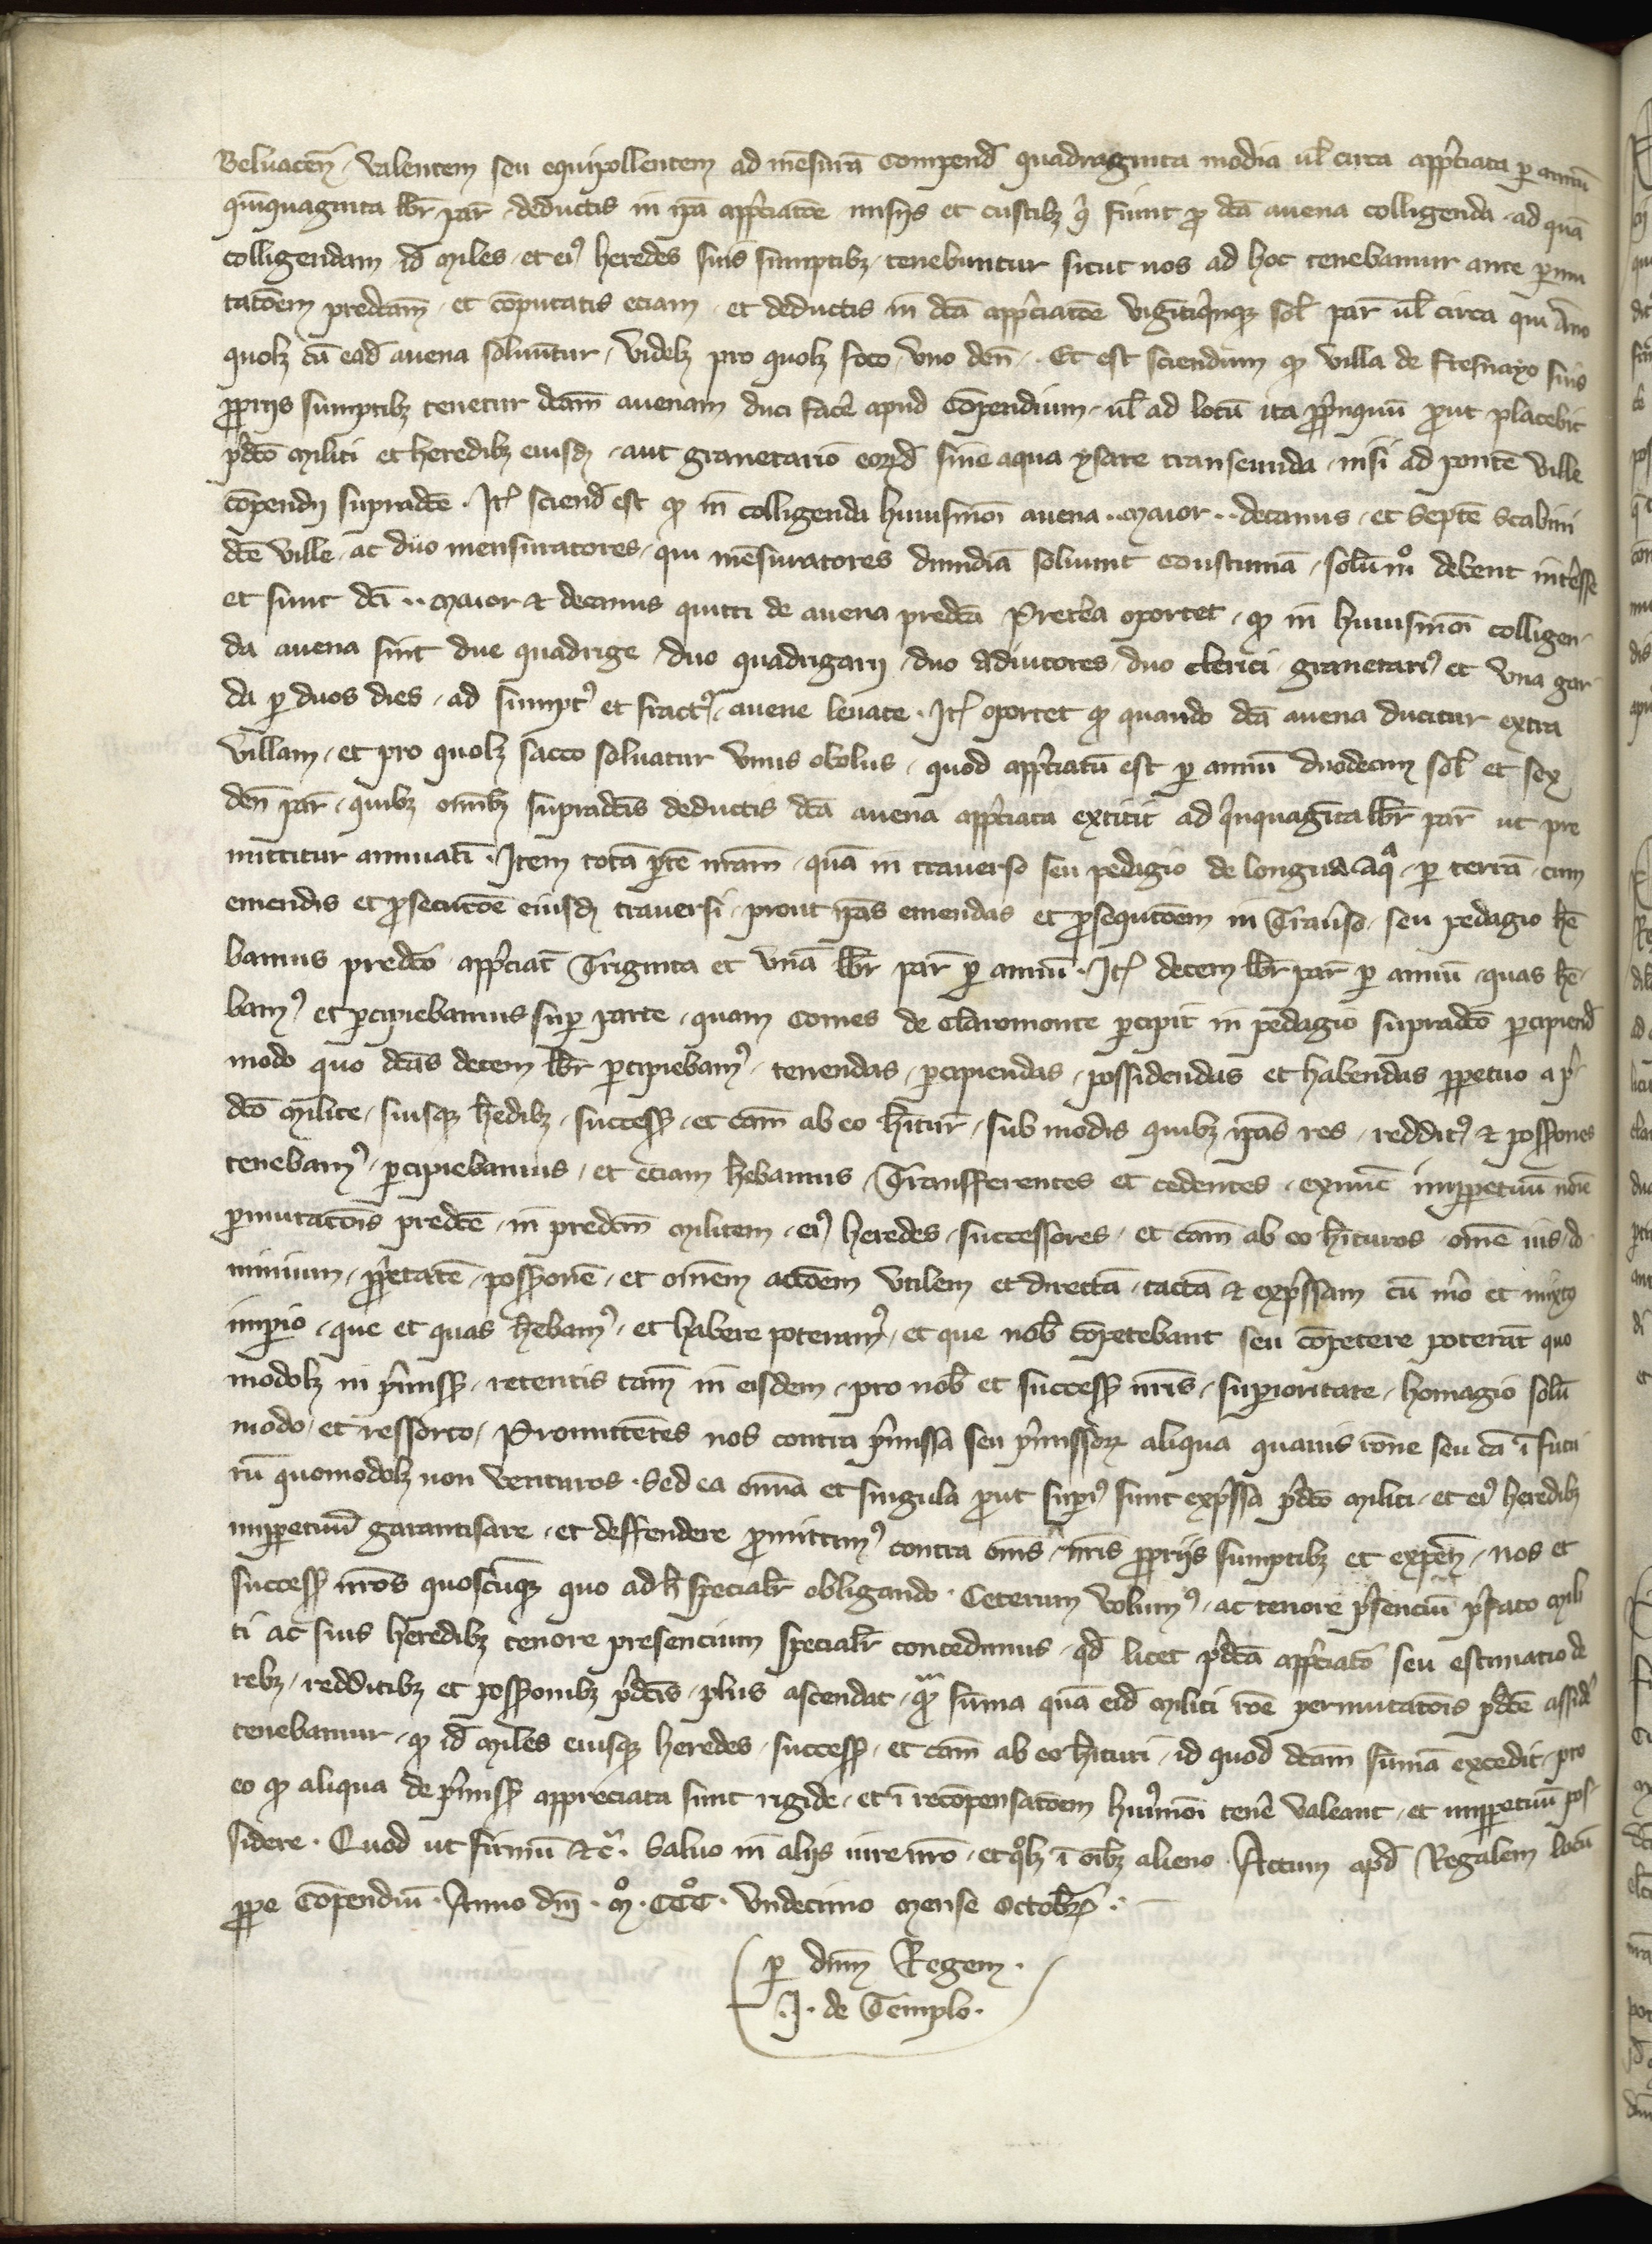 Beluacen̄ . valentem seu equipollentem ad mēsurā Compend̄ quadraginta modia ul̄ circa app̄ciata ꝑ annū
quīquaginta lib̄r par̄ . deductis in ip̄a app̄ciatōe misijs et custibꝫ q̄ fiunt ꝓ dc̄a auena colligenda . ad quā
colligendam id̄ miles . et eiꝰ heredes suis sumptibꝫ . tenebuntur sicut nos ad hoc tenebamur ante ꝑmu
tatōem predcām . et cōputatis eciam . et deductis in dc̄a app̄ciatōe vigītiqīnqꝫ sol̄ par̄ ul̄ circa qui Anno
quolꝫ cū ead̄ auena soluūtur . videlꝫ pro quolꝫ foco . vno den̄ . Et est sciendum ꝙ villa de fresnayo suis
ꝓprijs sumptibꝫ tenetur dcām auenam duci facē apud Compendium . ul̄ ad locū ita ꝓpīnquū ꝓut placebit
p̄dc̄o militi et heredibꝫ eiusdꝫ . aut granetario eorꝝd̄ sine aqua ysare transeunda . nisi ad pontē ville
cōpendij supradc̄e . Itꝫ sciend̄ est ꝙ in colligenda huiusmōi auena .. maior .. decanus . et septē scabini
dc̄e ville . ac duo mensuratores . qui mēsuratores dimidiā soluunt coustumā . solūmͦ debent int̄esse
et sunt dc̄i .. maior ⁊ decanus quitti de auena predc̄a Pret̄ea oportet . ꝙ in huiusmōi colligen-
da auena sint due quadrige . duo quadrigarij . duo adiutores . duo clerici . granetariꝰ et vna gar
da ꝑ duos dies . ad sumptꝰ et fractꝰ . auene leuate . Itꝫ oportet ꝙ quando dc̄a auena ducitur extra
villam . et pro quolꝫ sacco soluatur vnus obolus . quod app̄ciatū est ꝑ annū duodecim sol̄ et sex
den̄ par̄ . quibꝫ omībꝫ supradc̄is deductis dc̄a auena app̄ciata extitit ad qīnquagīta lib̄r par̄ ut pre
mittitur annuatī . Item totā ꝑtē nrām . quā in trauerso seu pedagio de longua aqͣ . ꝑ terrā . cum
emendis et ꝓsecutōe eiusdꝫ trauersi . prout ip̄as emendas et ꝓsequtōem in Trāuso . seu pedagio hē
bamus predc̄o app̄ciat̄ Triginta et vnā lib̄r par̄ ꝑ annū . Itꝫ decem lib̄r par̄ ꝑ annū . quas hē-
bamꝰ et ꝑcipiebamus suꝑ parte . quam Comes de Claromonte ꝑcipit in pedagio supradc̄o ꝑcipiend̄
modo quo dc̄as decem lib̄r ꝑcipiebamꝰ . tenendas . ꝑcipiendas . possidendas et habendas ꝑpetuo a p̄-
dc̄o milite . suisqꝫ h̄edibꝫ . success̄ . et cām ab eo hītur̄ . sub modis quibꝫ ip̄as res . redditꝰ ⁊ poss̄ones
tenebamꝰ . ꝑcipiebamus . et eciam h̄ebamus . Transferentes et cedentes . exnūc imꝑpetuū noīe
ꝑmutatōis predc̄e . in predcm̄ militem . eiꝰ heredes . successores . et cām ab eo h̄ituros . omē ius . do
minium . ꝓprietatē . poss̄ionē . et omnem actōem vtilem et directā . tacitā ⁊ exp̄ssam cū m̄o et mixto
imꝑio . que et quas h̄ebamꝰ . et habere poteramꝰ . et que nob̄ cōpetebant seu cōpetere poterāt quo
modolꝫ in p̄miss̄ . retentis tam̄ in eisdem . pro nob̄ et success̄ nr̄is . suꝑioritate . homagio solū
modo . et ressorto . Promittētes nos contra p̄missa seu p̄missorꝝ aliqua quauis rōne seu cā ī futu
rū quomodolꝫ non venturos . Sed ea omīa et singula ꝓut suꝑiꝰ sunt exp̄ssa p̄dc̄o militi . et eiꝰ heredibꝫ
imꝑpetuū garantisare . et deffendere ꝓmittimꝰ contra om̄s . nr̄is ꝓprijs sumptibꝫ et expēn̄ . nos et
success̄ nrōs quoscūqꝫ quo ad h̄ specialr̄ obligando . Ceterum volumꝰ . ac tenore p̄senciū p̄fato mili
ti ac suis heredibꝫ tenore presencium specialr̄ concedimus . qd̄ licet p̄dc̄a app̄ciatō seu estimatio de
rebꝫ . redditibꝫ et poss̄ionibꝫ p̄dc̄is . plus ascendat . qͣm sūma quā eid̄ militi rōe permutatōis p̄dc̄e assid̄e
tenebamur . ꝙ id̄ miles eiusqꝫ heredes . success̄ . et cām ab eo h̄ituri . id quod dcām sūmā excedit . pro
eo ꝙ aliqua de p̄miss̄ appreciata sunt rigide . et ī recōpensatōem huiꝰmōi tenē valeant . et imꝑpetuū pos-
sidere . Quod ut firmū ⁊c̄ . Saluo in alijs iure nrō . et qͦlꝫ ī oībꝫ alieno . Actum apd̄ Regalem locū
ꝓpe Compendiū . Anno dnī . Mͦ . CCCͦ . vndecimo mense Octobꝝ .
ꝑ dnm̄ Regem .
.J. de Templo .